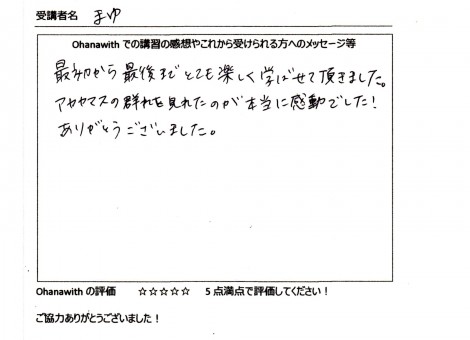 受講者名 まゆ
Ohanawith での講習の感想やこれから受けられる方へのメッセージ等
最初から最後までとても楽しく学ばせて頂きました。
アカヤマスの群れを見れたのが本当に感動でした！
ありがとうございました。
Ohanawith の評価 ☆☆☆☆☆ 5点満点で評価してください！
ご協力ありがとうございました！